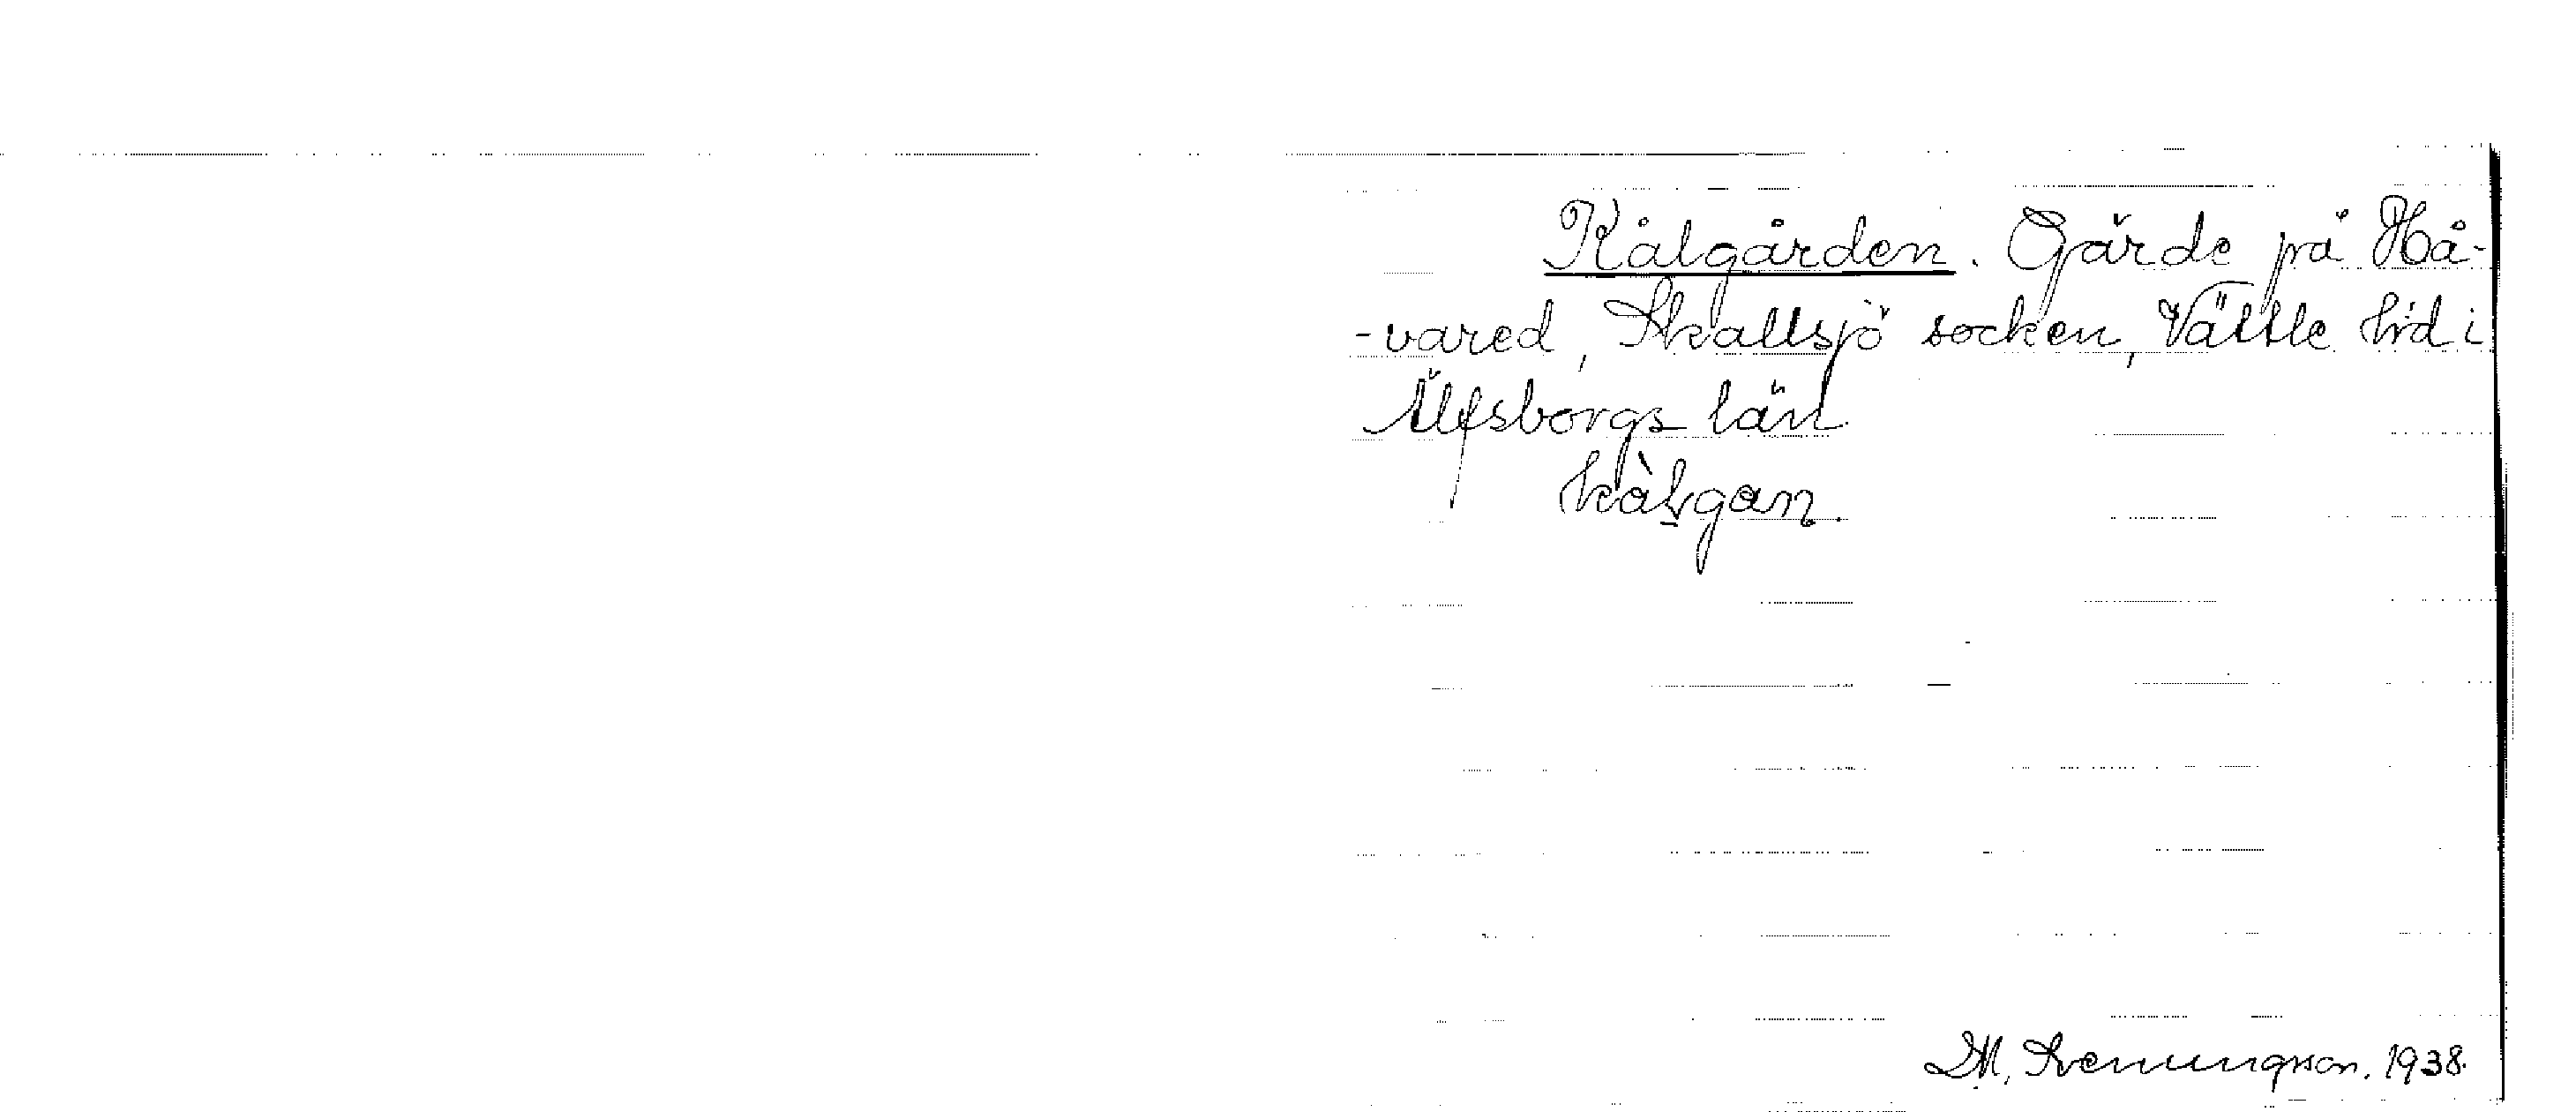 Kålgården. Gärde på Hå-
-vared, Skallsjö socken, Vättle hrd i
Älfsborgs län.
kålgan.
M. Svenungsson. 1938.